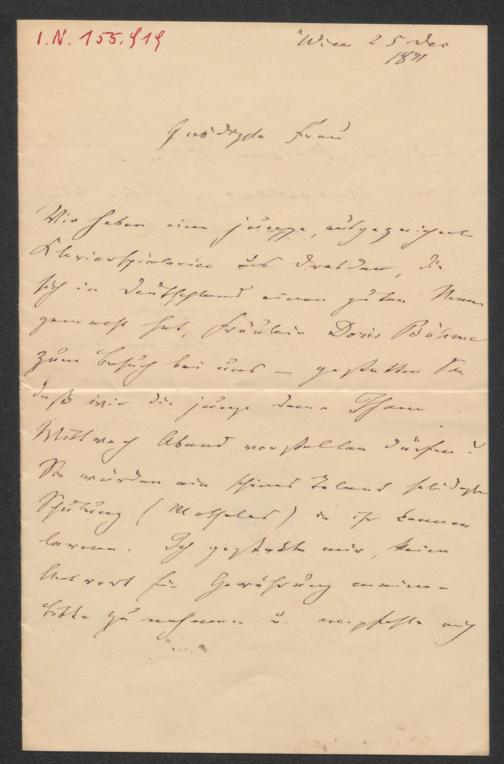 I.N. 155.919
Wien 25 Dec
1871
Gnädigste Frau
Wir haben eine junge, ausgezeichnete
Klavierspielerin aus Dresden, die
sich in Deutschland einen guten Namen
gemacht hat, Fräulein Doris Böhme
zum Besuch bei uns – gestatten Sie
daß wir die junge Dame Ihnen
Mittwoch Abend vorstellen dürfen?
Sie würden ein schönes Talent
Schulung ( ) in ihr kennen
lernen. Ich gestatte mir, keine
Antwort für Gewährung meiner
Bitte zu nehmen u. empfehle mich